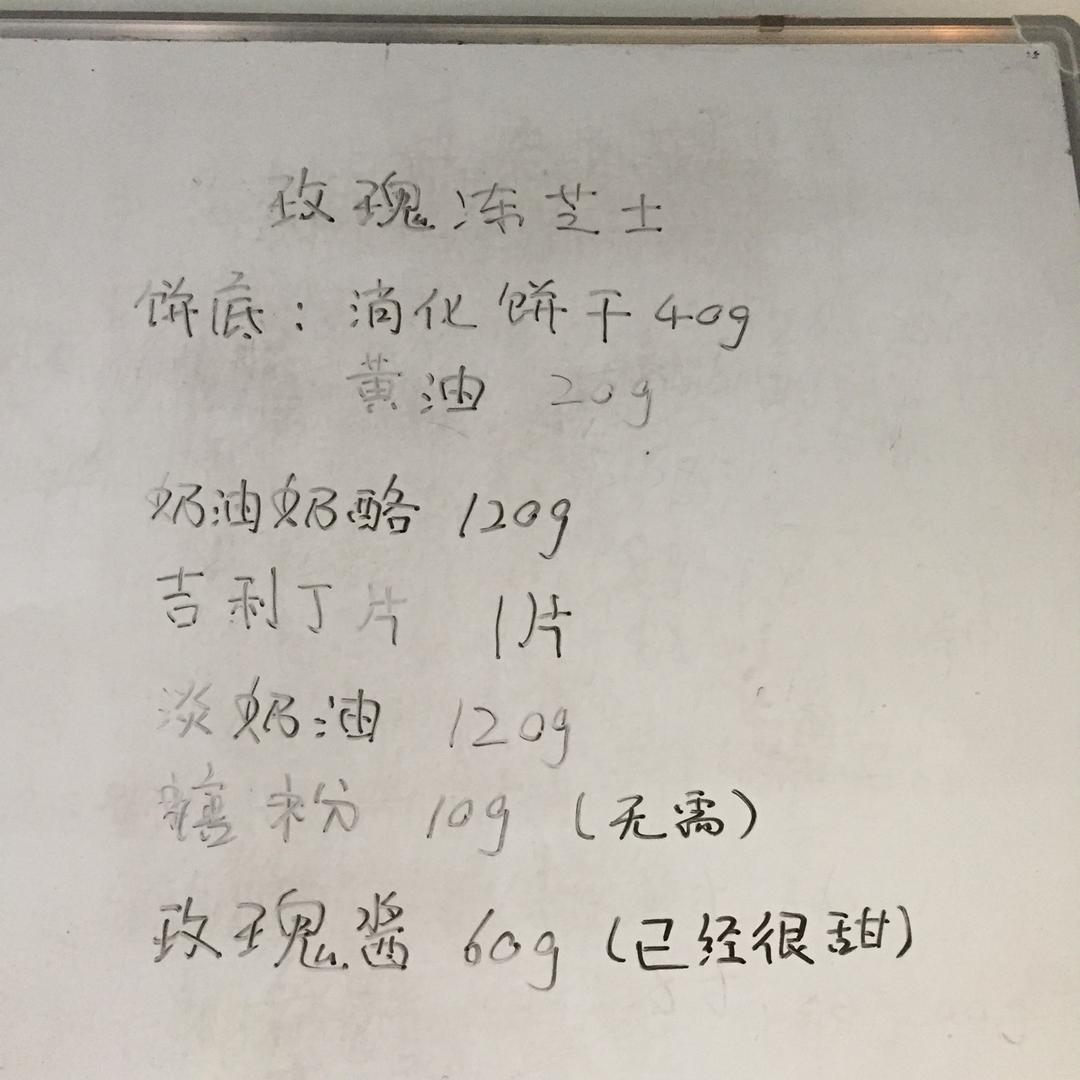 玫瑰冻芝士
饼底：消化饼干40g
黄油 20g
奶油奶酪 120g
吉利丁片 1片
淡奶油 120g
糖粉 10g（无需）
玫瑰酱 60g（已经很甜）